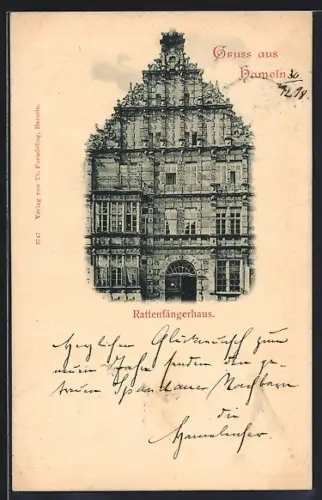 Gruss aus
Hameln
30
12 98
2747 Verlag von Th. Fuendeling, Hameln.
Rattenfängerhaus.
Herzlichen Glückwunsch zum
neuen Jahr senden den ge-
treuen Spandauer Nachbarn
die
Hamelenser.